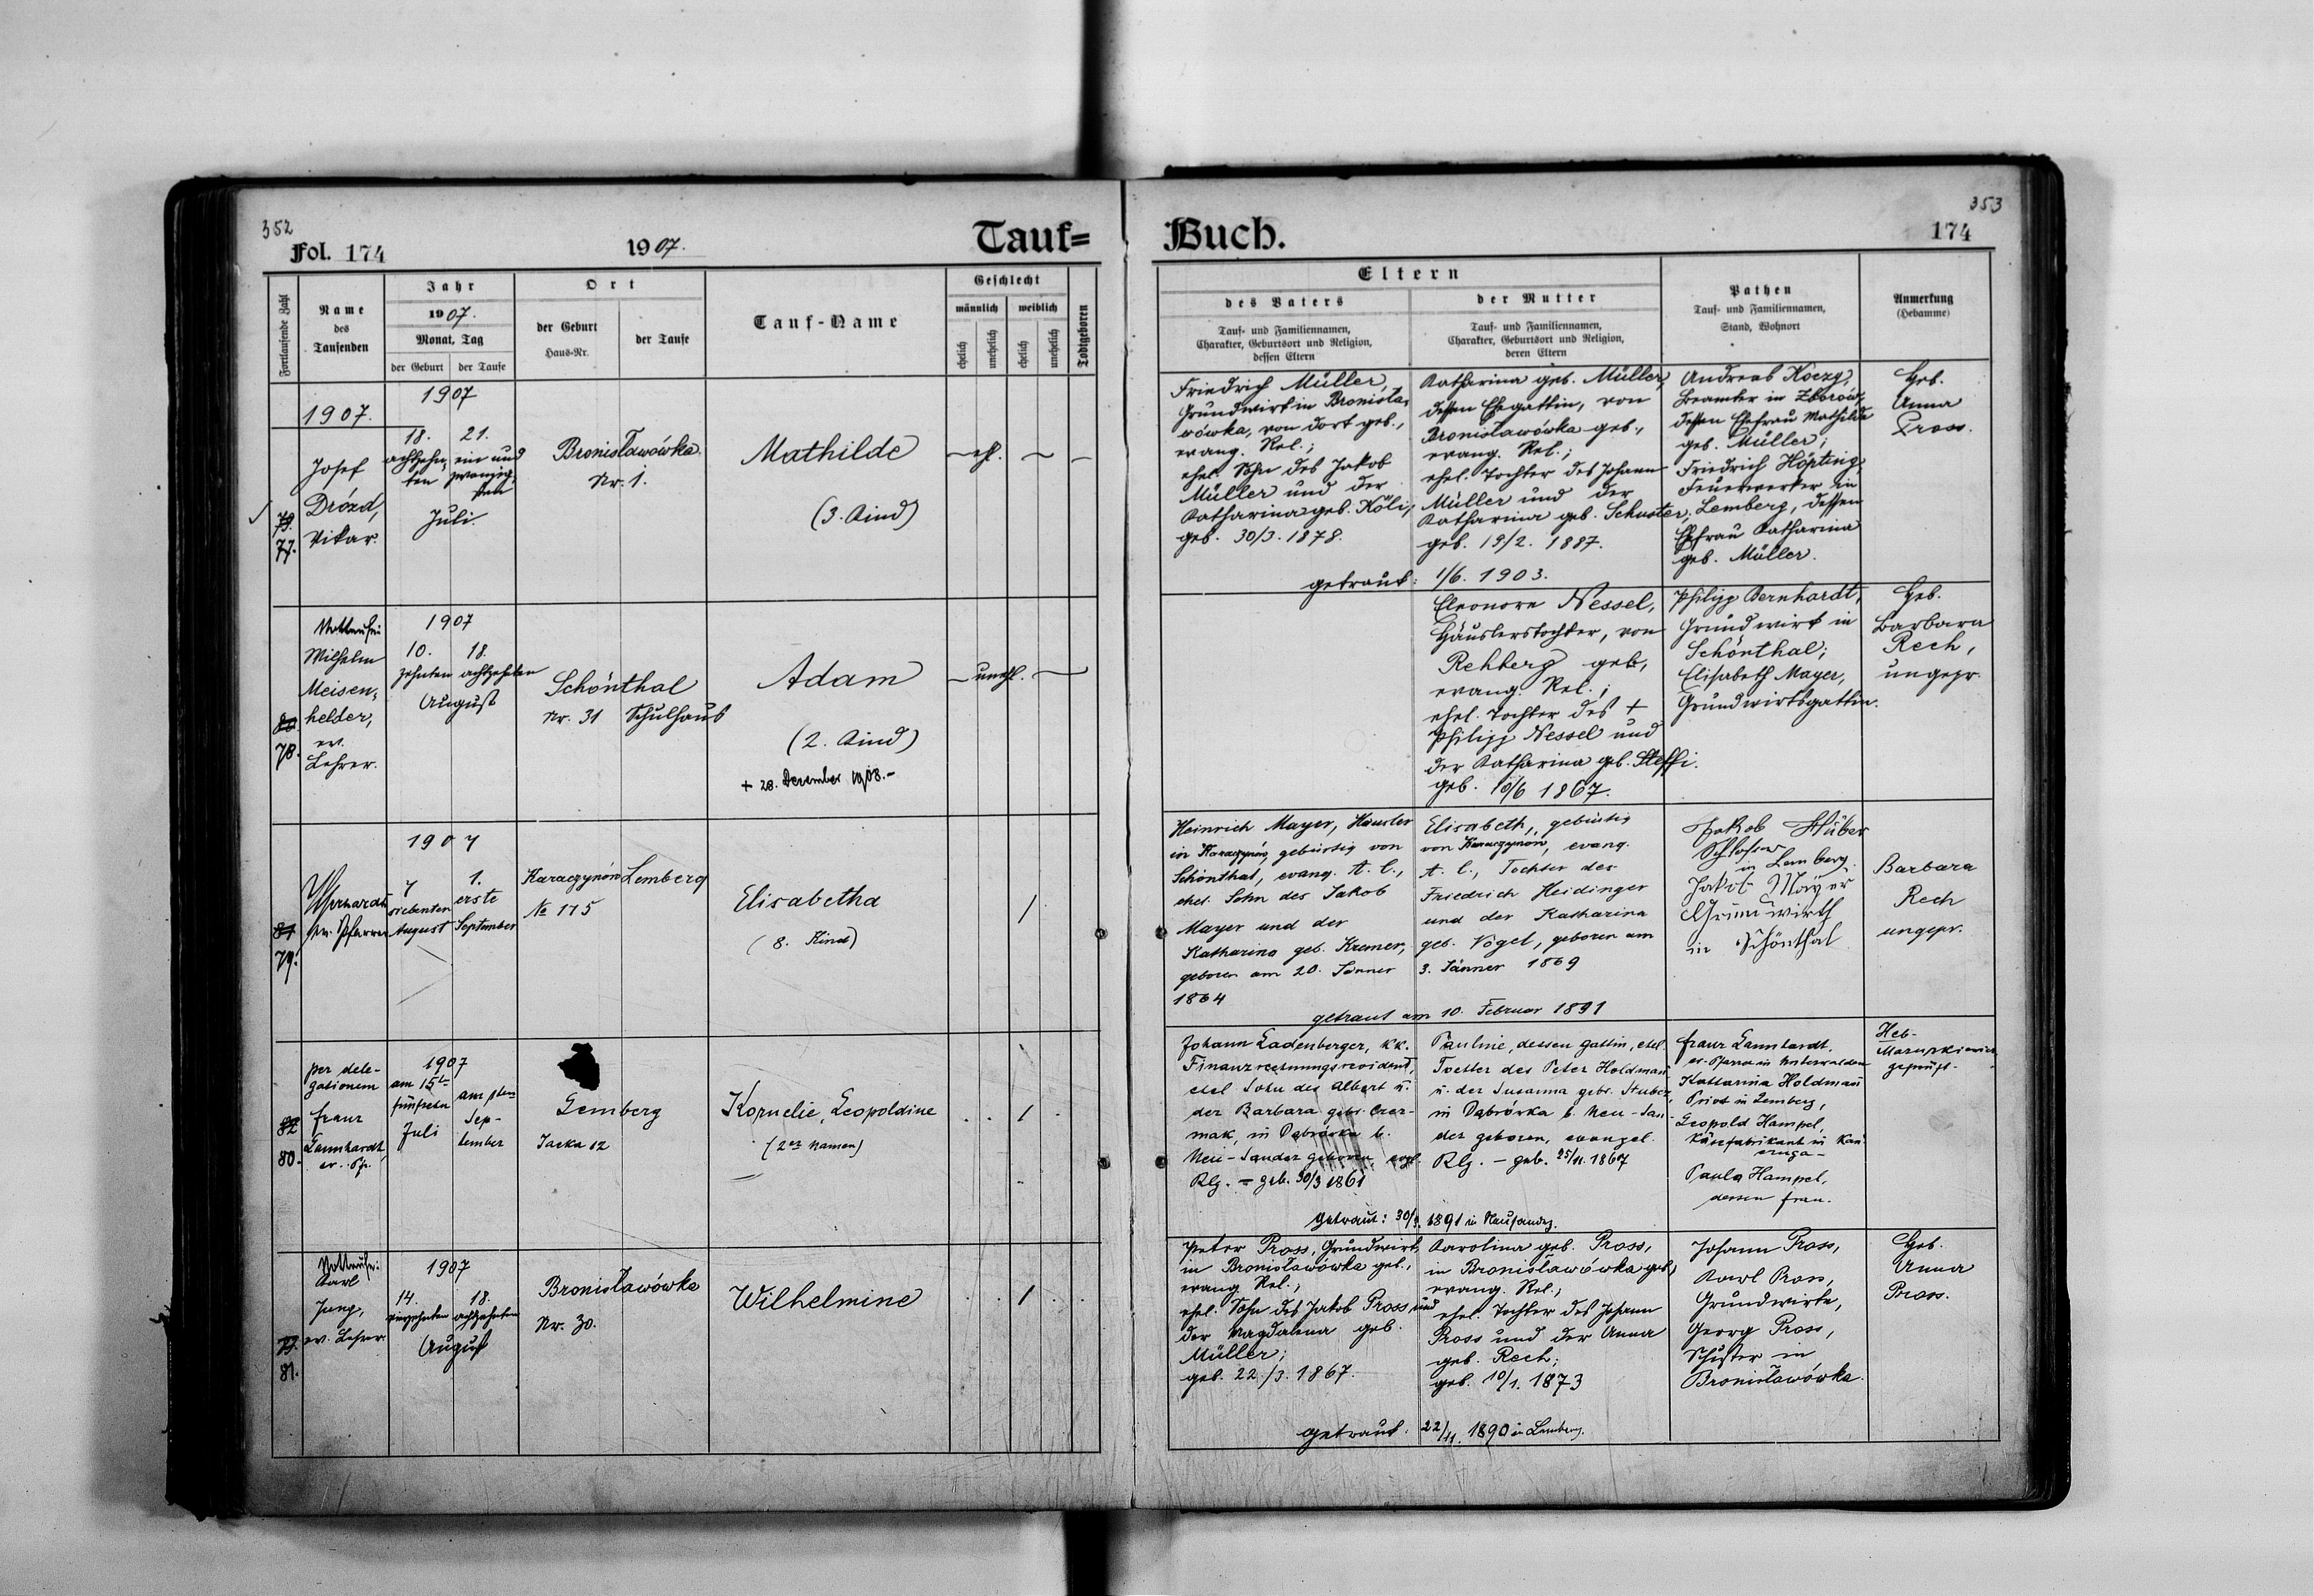 352
Fol. 174
1907.
Tauf=
Fortlaufende Zahl
Name
des
Taufenden
Jahr
1907.
Monat, Tag
der Geburt
der Taufe
Ort
der Geburt
Haus-Nr.
der Taufe
Tauf-Name
Geschlecht
männlich
weiblich
ehelich
unehelich
ehelich
unehelich
Todtgeboren
1907.
79.
77.
Josef
Drózd,
Vikar.
1907
18.
achtzehn-
ten
21.
ein und
zwanzig-
sten
Juli.
Bronisławówka.
Nr. 1.
Mathilde
(3. Kind)
– ehl. – –
80
78.
Nottaufe:
Wilhelm
Meisen-
helder,
ev.
Lehrer.
1907
10.
zehnten
18.
achtzehnten
August
Schönthal
Nr. 31
Schulhaus
Adam
(2. Kind)
+ 28. December 1908.-
– unehl. –
81
79.
ev. Pfarrer
1907
7
siebenten
August
1.
erste
September
Karaczynów
№ 175
Lemberg
Elisabetha
(8. Kind)
/
82
80.
per dele-
gationem
Franz
Lannhardt,
ev. Pfr.
1907
am 15ten
fünfzehn
Juli
Sep-
tember
Lemberg
Jacka 12
Kornelie, Leopoldine
(2er Namen)
/
81.
Nottaufe:
Karl
Jung,
ev. Lehrer.
1907
14.
vierzehnten
18.
achtzehnten
August
Bronisławówka
Nr. 30.
Wilhelmine
/
353
Buch.
174
Eltern
des Vaters
Tauf- und Familiennamen,
Charakter, Geburtsort und Religion,
dessen Eltern
der Mutter
Tauf- und Familiennamen,
Charakter, Geburtsort und Religion,
deren Eltern
Pathen
Tauf- und Familiennamen,
Stand, Wohnort
Anmerkung
(Hebamme)
Friedrich Müller,
Grundwirt in Bronisła-
wówka, von dort geb.,
evang. Rel.;
ehel. Sohn des Jakob
Müller und der
Katharina geb. Köli;
geb. 30/3. 1878.
Katharina geb. Müller,
dessen Ehegattin, von
Bronisławówka geb.,
evang. Rel.;
ehel. Tochter des Johann
Müller und der
Katharina geb. Schuster;
geb. 19/2. 1887.
getraut: 1/6. 1903.
Andreas Koczy,
Beamter in Zborów,
dessen Ehefrau Mathilde
geb. Müller;
Friedrich Höpting,
Feuerwerker in
Lemberg, dessen
Ehefrau Katharina
geb. Müller.
Heb.
Anna
Pross.
Eleonore Nessel,
Häuslerstochter, von
Rehberg geb.,
evang. Rel.;
ehel. Tochter des +
Philipp Nessel und
der Katharina geb. Steffi.
geb. 10/6 1867.
Philipp Bernhardt,
Grundwirt in
Schönthal;
Elisabeth Mayer,
Grundwirtsgattin.
Heb.
Barbara
Rech,
ungepr.
Heinrich Mayer, Häusler
in Karaczynów, gebürtig von
Schönthal, evang. A. C.,
ehel. Sohn des Jakob
Mayer und der
Katharina geb. Kremer,
geboren am 20. Jänner
1864
Elisabeth, gebürtig
von Karaczynów, evang.
A. C., Tochter des
Friedrich Heidinger
und der Katharina
geb. Vogel, geboren am
3. Jänner 1869
getraut am 10. Februar 1891
Jakob Stüber
Schlosser
in Lemberg.
Jakob Mayer
Grundwirth
in Schönthal
Barbara
Rech
ungepr.
Johann Ladenberger, k.k.
Finanzrechnungsrevident,
ehel Sohn des Albert u.
der Barbara gebr. Czer-
mak, in Dąbrówka b.
Neu-Sandez geboren, evgl.
Rlg. = geb. 30/3 1861
Pauline, dessen Gattin, ehel.
Tochter des Peter Holdmann
u. der Susanna gebr. Stuber,
in Dąbrówka b. Neu-San-
dez geboren, evangel.
Rlg. – geb. 25/11. 1867
getraut: 30/9. 1891 in Neusandez.
Franz Lannhardt,
ev. Pfarrer in Unterwalden
Katharina Holdmann
Privat in Lemberg,
Leopold Hampel,
Käsefabrikant in
Paula Hampel,
dessen Frau.
Heb-
geprüft.
Peter Pross, Grundwirt
in Bronisławówka geb.,
evang. Rel.;
ehel. Sohn des Jakob Pross und
der Magdalena geb.
Müller;
geb. 22./3. 1867.
Karolina geb. Pross,
in Bronisławówka geb.,
evang. Rel.;
ehel. Tochter des Johann
Pross und der Anna
geb. Rech;
geb. 10/1. 1873
getraut: 22/11. 1890 in Lemberg.
Johann Pross,
Karl Pross,
Grundwirte,
Georg Pross,
Schuster in
Bronisławówka.
Heb.
Anna
Pross.